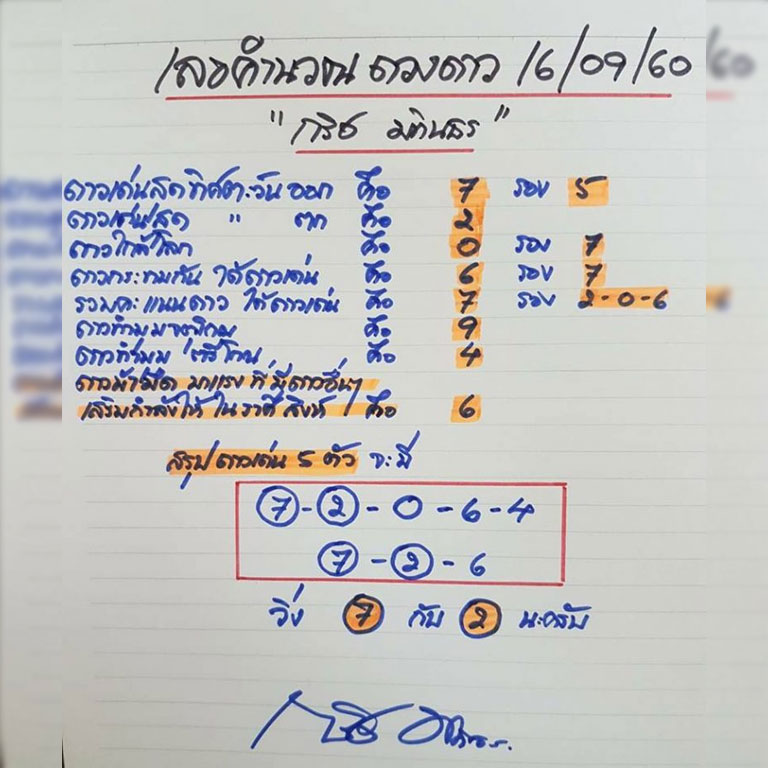 เลขคำนวณ ดวงดาว 16/09/60
"กริช มตินธร"
ดาวเด่นสุด ทิศตะวัน ออก คือ 7 รอง 5
ดาวเด่นสุด " ตก คือ 2
ดาวใกล้โลก คือ 0 รอง 7
ดาวกระทบกัน ได้ดาวเด่น คือ 6 รอง 7
รวมคะแนนดาว ได้ดาวเด่น คือ 7 รอง 2-0-6
ดาวทำมุม คือ 9
ดาวทำมุม ตรีโกณ คือ 4
ดาว มาแรง ที่ มีดาวอื่นๆ
เสริมกำลังให้ ใน ราศี สิงห์ คือ 6
สรุป ดาวเด่น 5 ตัว จะมี
7-2-0-6-4
7-2-6
วิ่ง 7 กับ 2 นะครับ